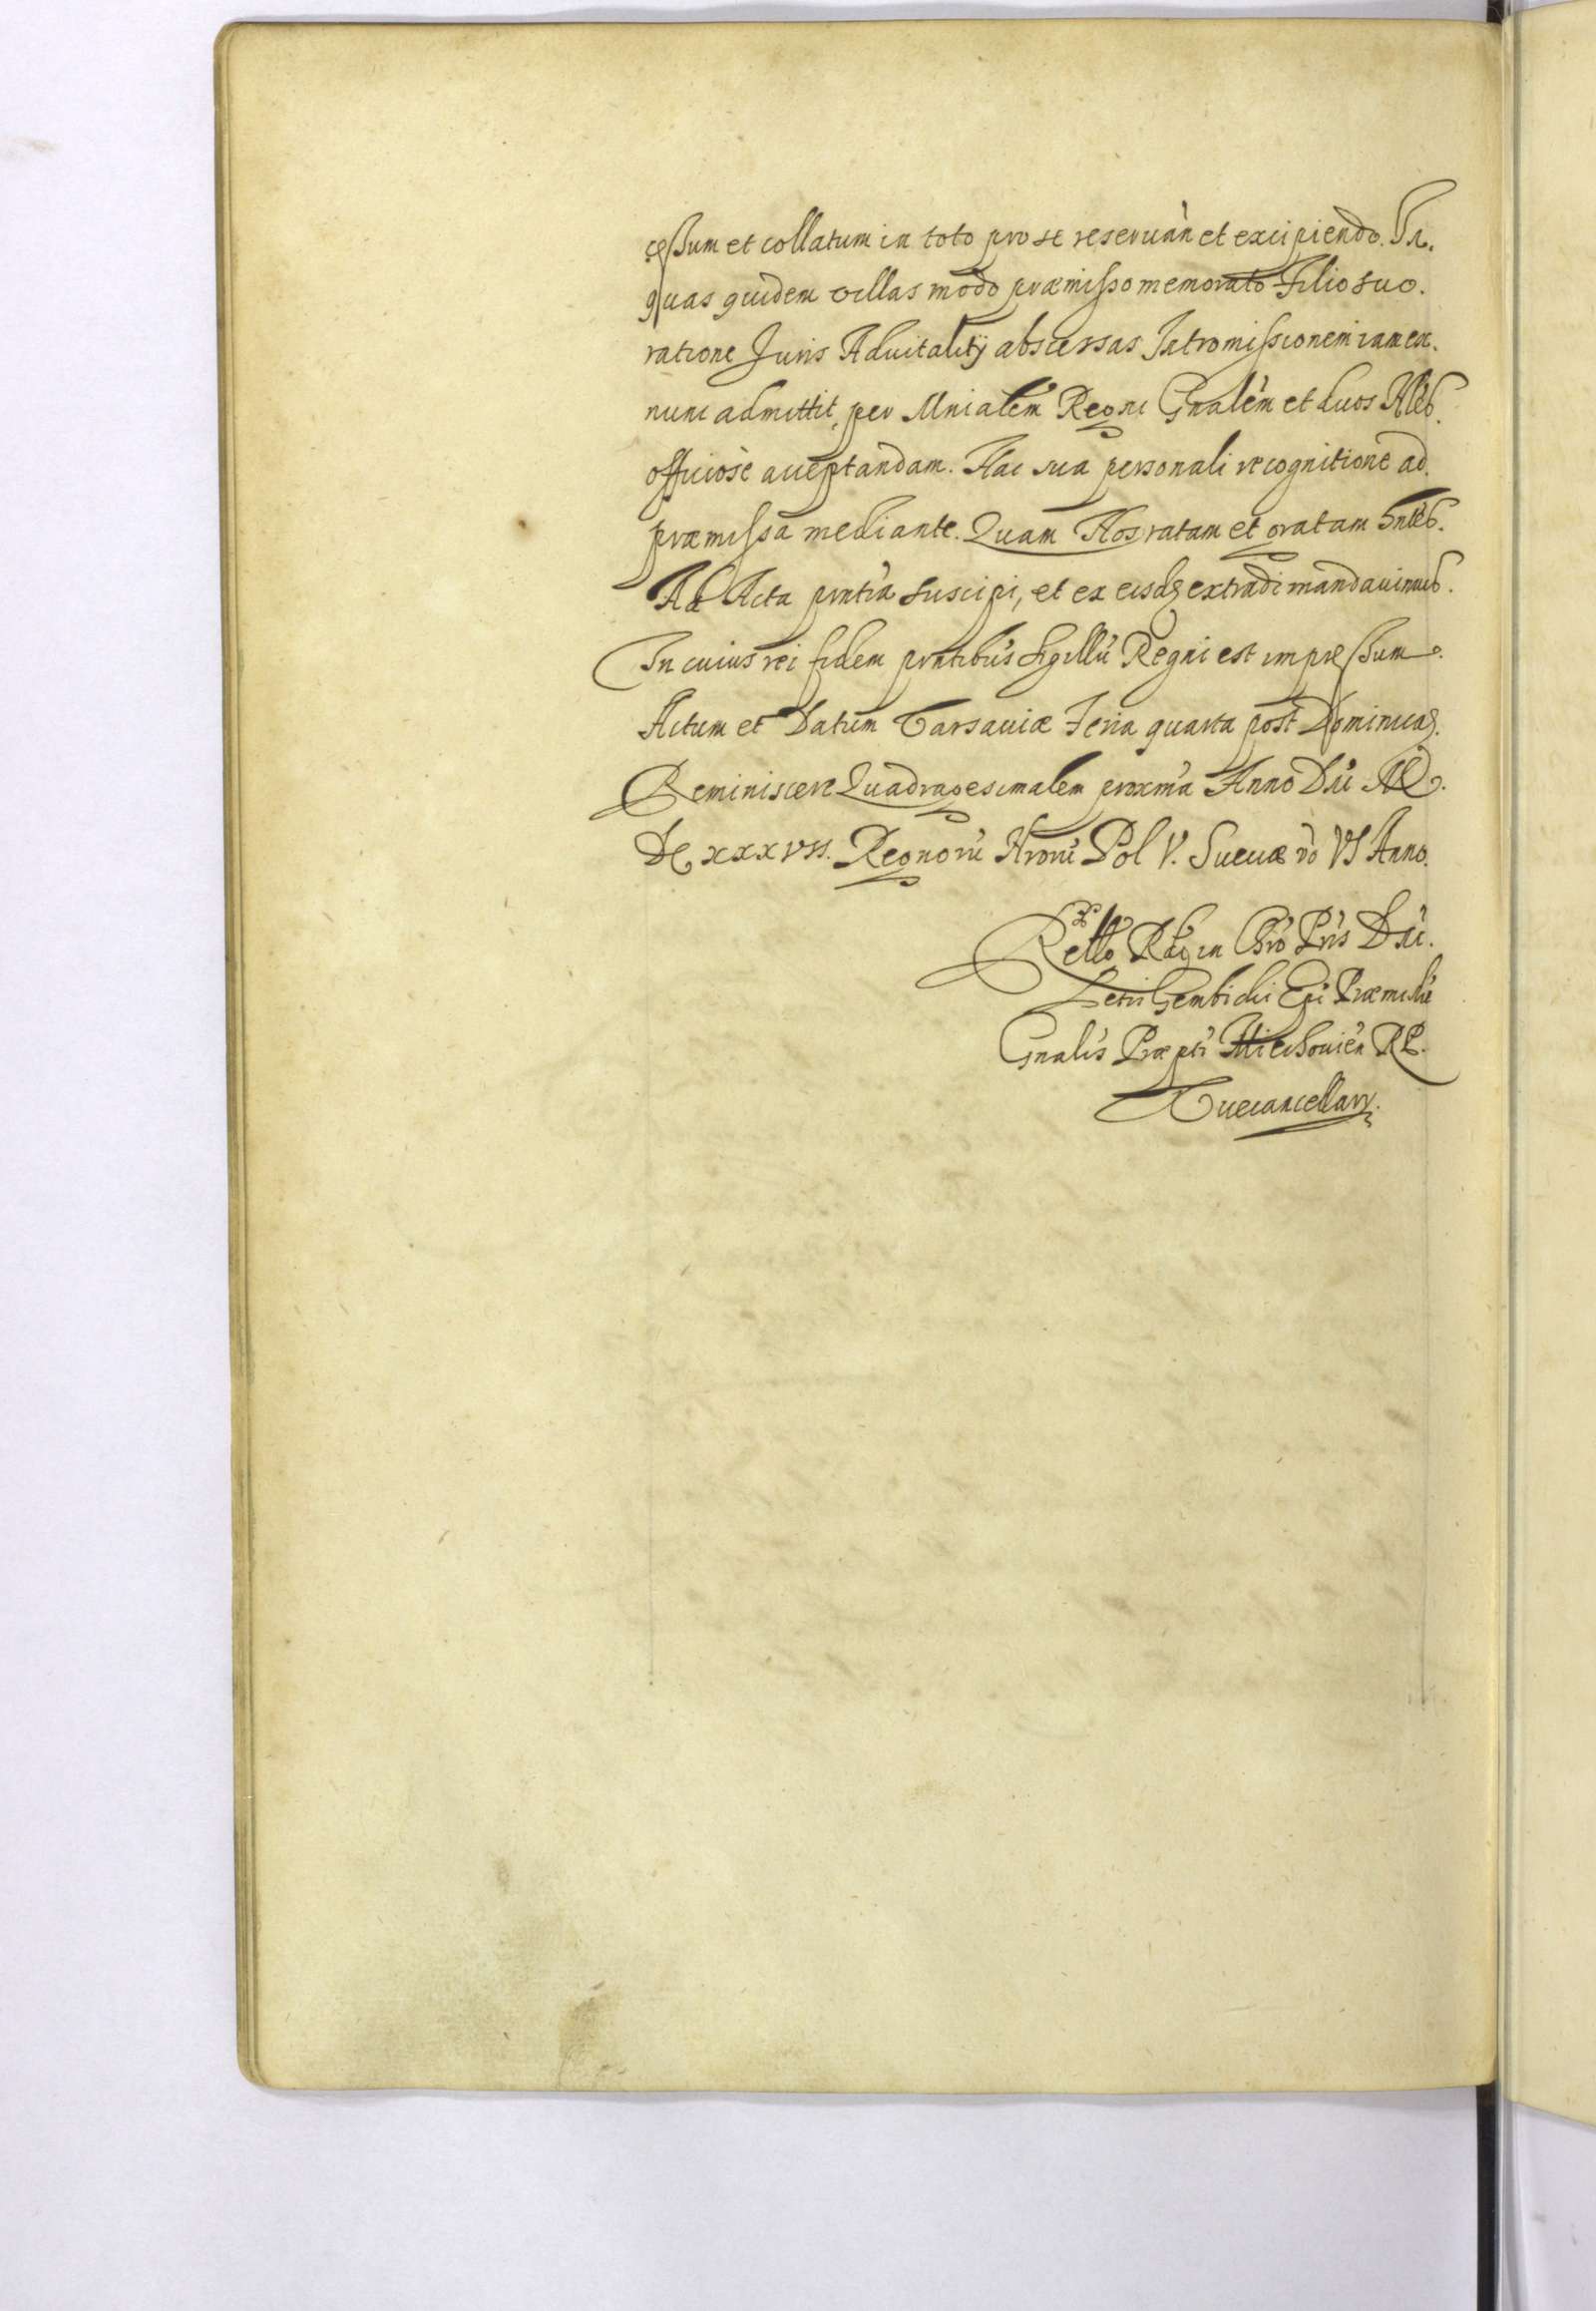 cessum et collatum in toto pro se reseruan et excipiendo. In.
quas quidem villas modo præmisso memorato Filio suo.
ratione Juris Aduitalitÿ abscessas Intromissionem iam ex.
nunc admittit, per Mnialem Regni Gnalem et duos Nleb.
officiose acceptandam. Hac sua personali recognitione ad.
præmissa mediante. Quam Nos ratam et gratam hntes.
Ad Acta pntia suscipi, et ex eisdq extradi mandauimus.
In cuius rei fidem pntibus sigillu Regni est impressum.
Actum et Datum Varsauiæ Feria quarta post Dominicaq.
Reminiscere Quadragesimalem proxma Anno Dni M.
DC xxxvıı. Regnoru Nroru Pol V. Sueciæ vo VI Anno.
Rello Rdi in Chro Pris Dni.
Petri Gembicki Epi Præmislie
Gnalis Præpti Miechouien RP.
Vicecancellary.